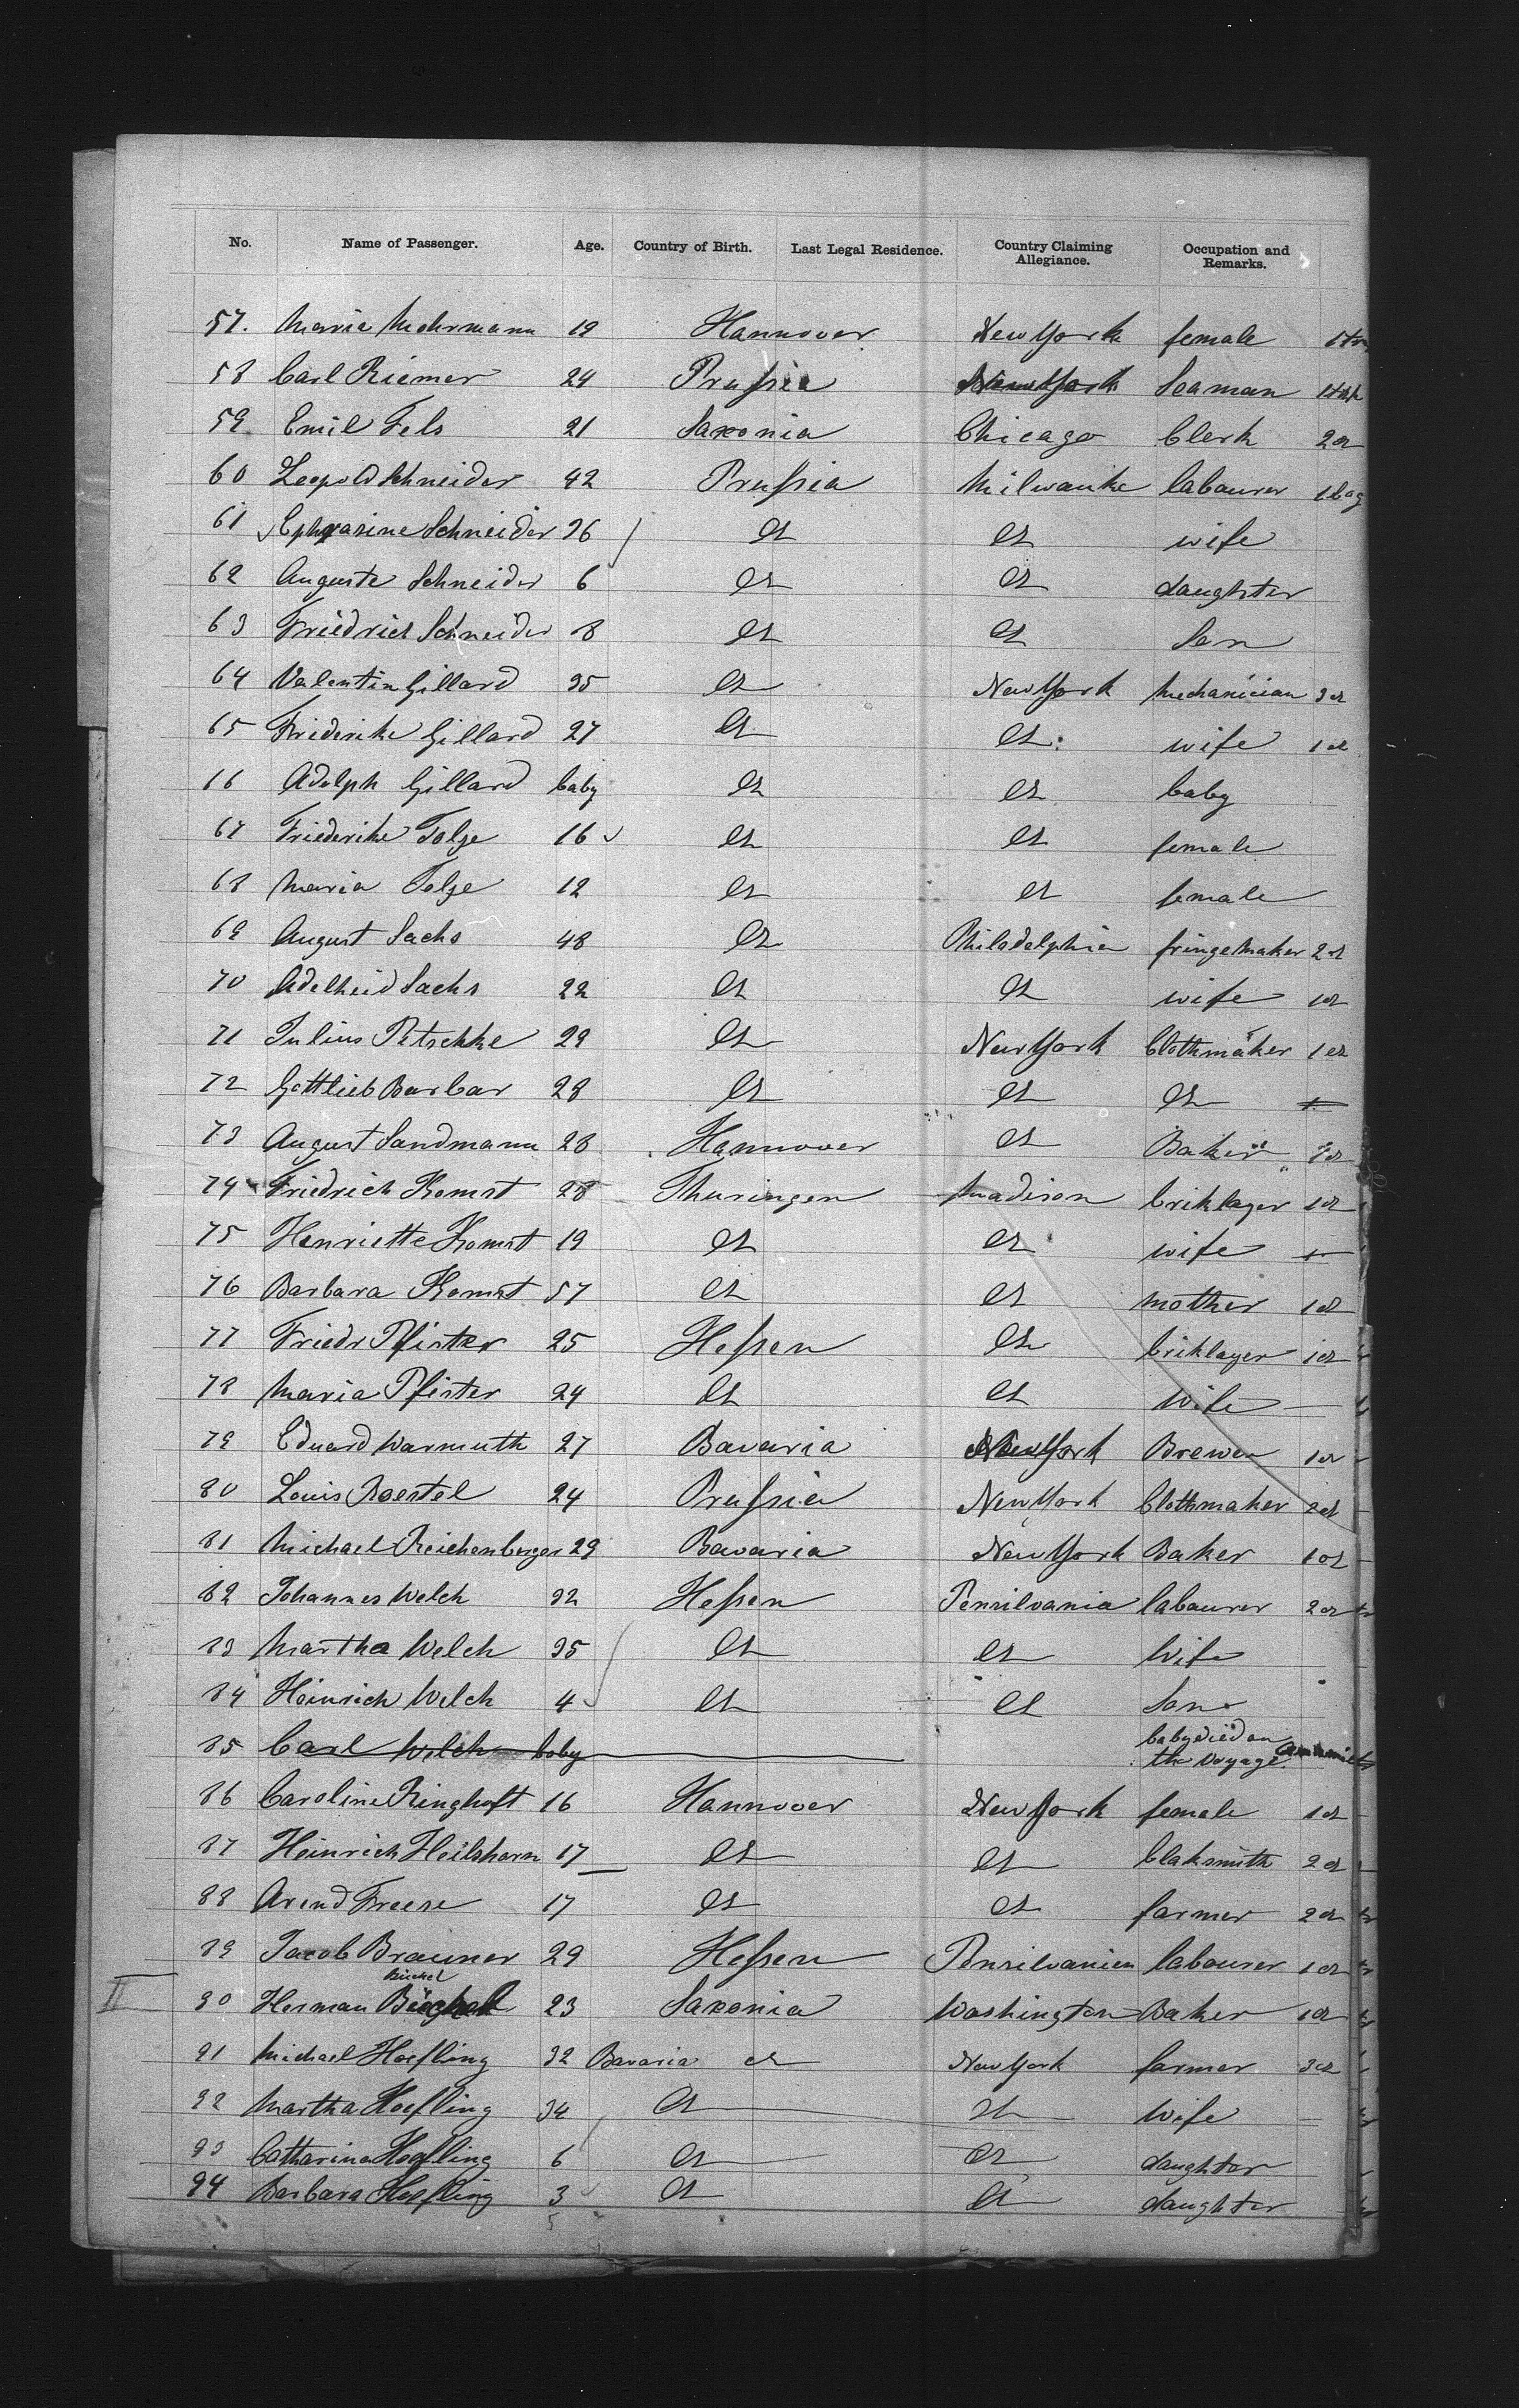 No. Name of Passenger. Age. Country of Birth. Last Legal Residence. Country Claiming Allegiance. Occupation and Remarks.
57. Maria Mohrmann 19 Hannover New York female
58 Carl Riemer 24 Prussia New York Seaman
59. Emil Fels 21 Saxonia Chicago Clerk 2 d
60 Leopold Schneider 42 Prussia Milwauke labourer 1 bag
61 Schneider 36 d d wife
62 Auguste Schneider 6 d d daughter
63 Friedrich Schneider 8 d d Son
64 Valentin Gillard 35 d New York Mechanician 3 d
65 Friderike Gillard 27 d d wife 1 d
66 Adolph Gillard baby d d baby
67 Friederike Tolze 16 d d female
68 Maria Tolze 12 d d female
69 August Sachs 48 d Philadelphia fringemaker 2 d
70 Adelheid Sachs 22 d d wife 1 d
71 Julius Petschke 29 d New York Clothmaker 1 d
72 Gottlieb Barbar 28 d d d
73 August Sandmann 28 Hannover d Baker d
74 Friedrich Komst 28 Thuringen Madison briklayer 1 d
75 Henriette Komst 19 d d wife
76 Barbara Komst 57 d d mother 1 d
77 Friedr Pfister 25 Hessen d briklayer 1 d
78 Maria Pfister 24 d d Wife
79 Eduard Warmuth 27 Bavaria New York Brewer 1 d
80 Louis Roestel 24 Prussia New York Clothmaker 2 d
81 Michael Reichenberger 29 Bavaria New York Baker 1 d
82 Johannes Welch 32 Hessen Pensilvania labourer 2 d
83 Martha Welch 35 d d Wife
84 Heinrich Welch 4 d d Son
85 Carl Welch baby baby died on
the Voyage.
86 Caroline Ringhoft 16 Hannover New York female 1 d
87 Heinrich Heilshorn 17 d d blaksmith 2 d
88 Arend Freese 17 d d farmer 2 d
89 Jacob Brauner 29 Hessen Pensilvanien labourer 1 d
Büchel
II 90 Herman 23 Saxonia Washington Baker 1 d
91 Michael Hoefling 32 Bavaria d New York farmer 3 d
92 Martha Hoefling 34 d d Wife
93 Catharina Hoefling 6 d d daughter
94 Barbara Hoefling 3 d d daughter